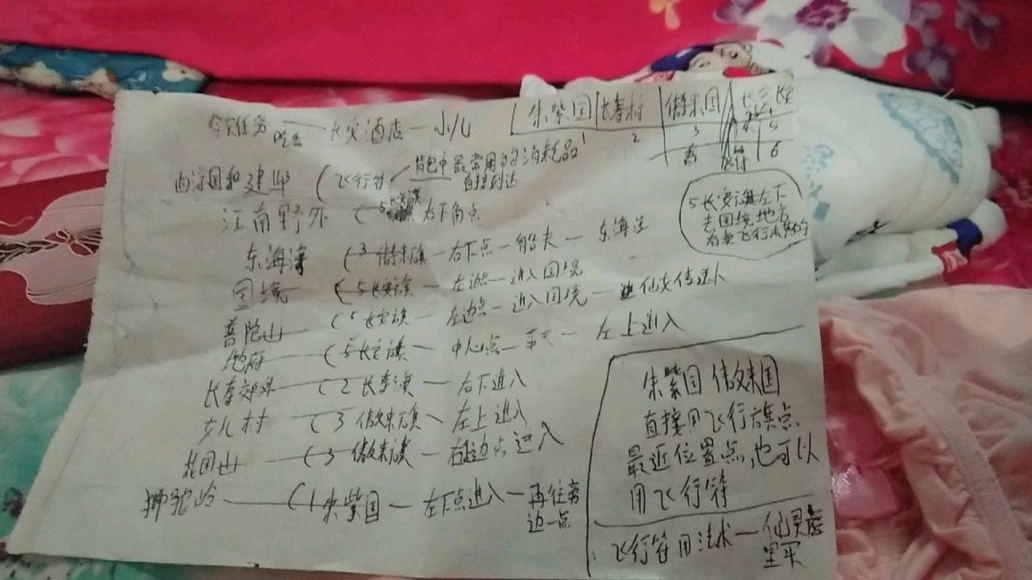 长安酒店—小儿
朱紫国 长寿村 傲来国 长安
1 2 3 5
6
飞行符 背包中最常用的消耗品
直接到达
江南野外 (5 右下角点
东海湾 (3 傲来旗—右下点—船夫—东海湾
国境 (5长安旗—左边点—进入国境
普陀山 (5 长安旗—左边点—进入国境—仙女传送人
地府 (5长安旗—中心点—左上进入
长寿郊外 (2 长寿旗—右下进入
女儿村 (3 傲来旗—左上进入
花果山 (3 傲来旗—右边点 进入
狮驼岭 (1朱紫国—左下点进入—再往旁
边一点
5长安旗左下
去国境地方
朱紫国 傲来国
直接用飞行旗点
最近位置点,也可以
用飞行符
飞行符用法术—仙灵店
里买